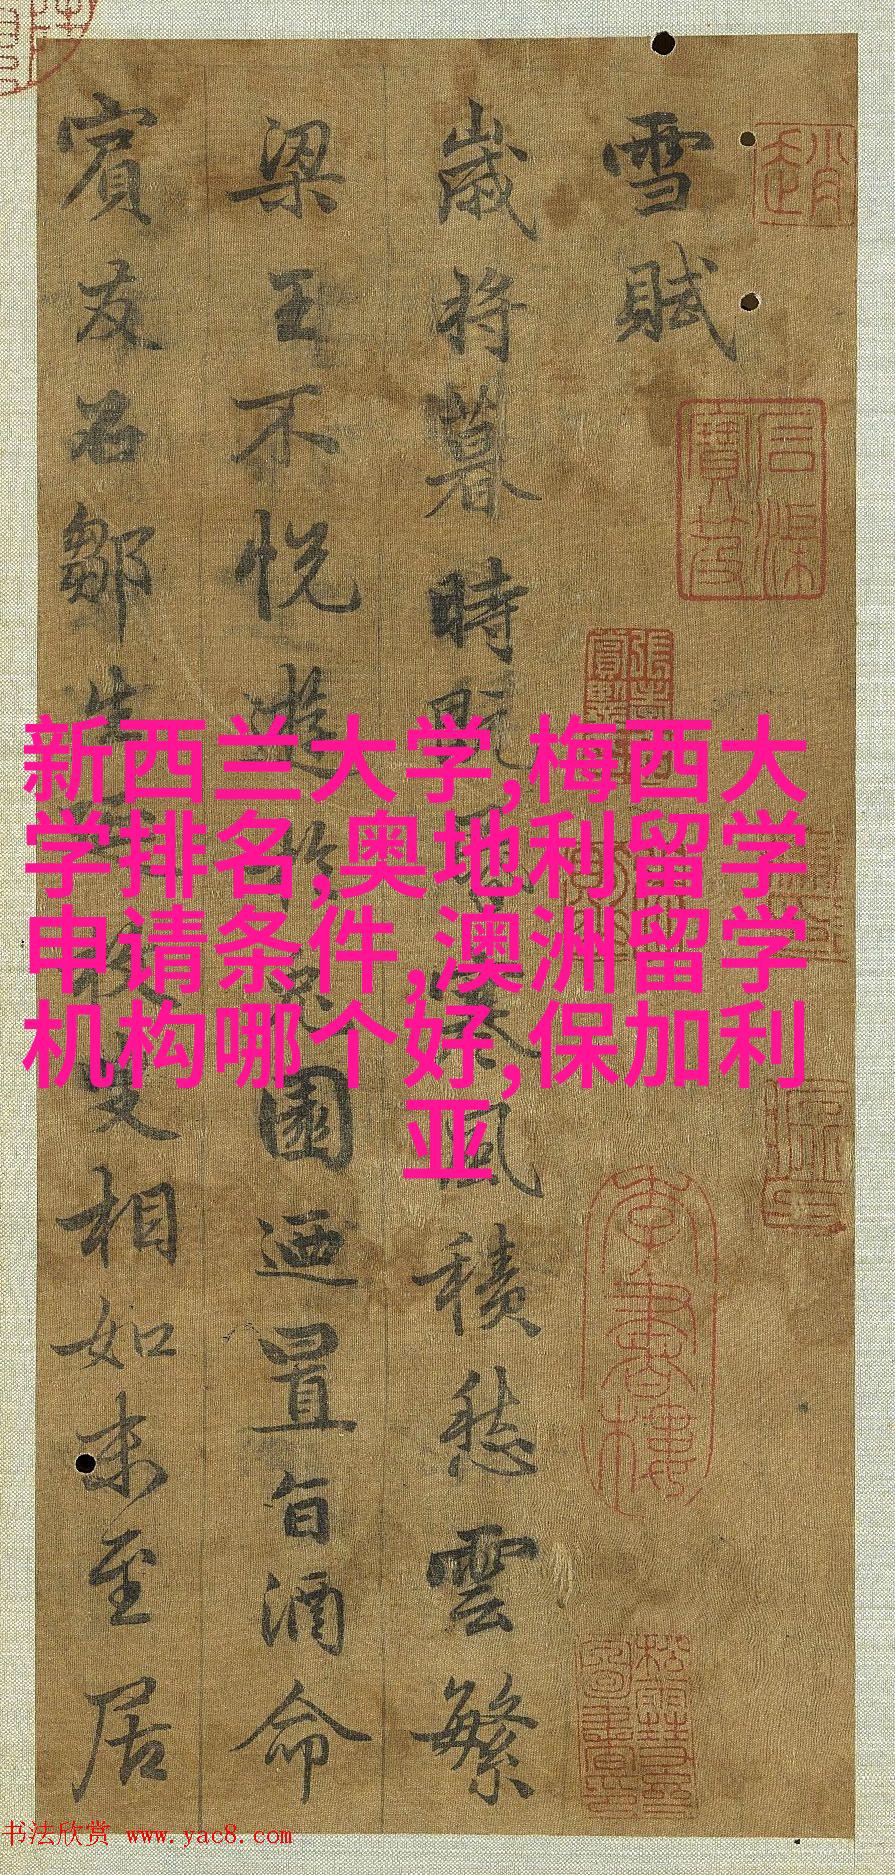 雪賦
歲將暮時既昏寒風積愁雲繁
梁王不悅遊於兔園迺置旨酒命
賓友召鄒生延枚叟相如末至居
新西兰大学,梅西大
学排名,奥地利留学
申请条件,澳洲留学
机构哪个好,保加利
亚
书法欣赏 www.yac8.com